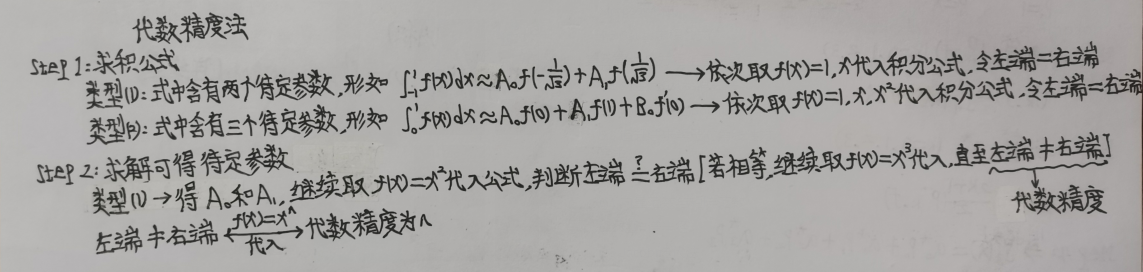 代数精度法
Step 1:求积公式
类型(1):式中含有两个待定参数,形如 ∫₋₁¹f(x)dx≈A₀f(-1/√3)+A₁f(1/√3) → 依次取f(x)=1,x代入积分公式,令左端=右端
类型(2):式中含有三个待定参数,形如 ∫₀¹f(x)dx≈A₀f(0)+A₁f(1)+B₀f'(0) → 依次取f(x)=1,x,x²代入积分公式,令左端=右端
Step 2:求解可得待定参数
类型(1)→得A₀和A₁,继续取f(x)=x²代入公式,判断左端≟右端[若相等,继续取f(x)=x³代入,直至左端≠右端]
代数精度
左端≠右端 ⟷ f(x)=xⁿ 代入 代数精度为n